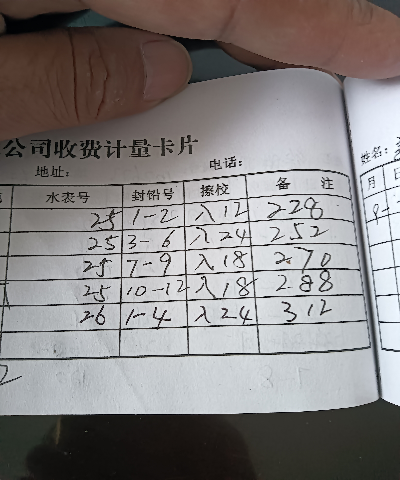 公司收费计量卡片
地址： 电话：
水表号 封铅号 擦校 备 注
25 1-2 入12 228
25 3-6 入24 252
25 7-9 入18 270
25 10-12 入18 288
26 1-4 入24 312
姓名：
月 日
9-